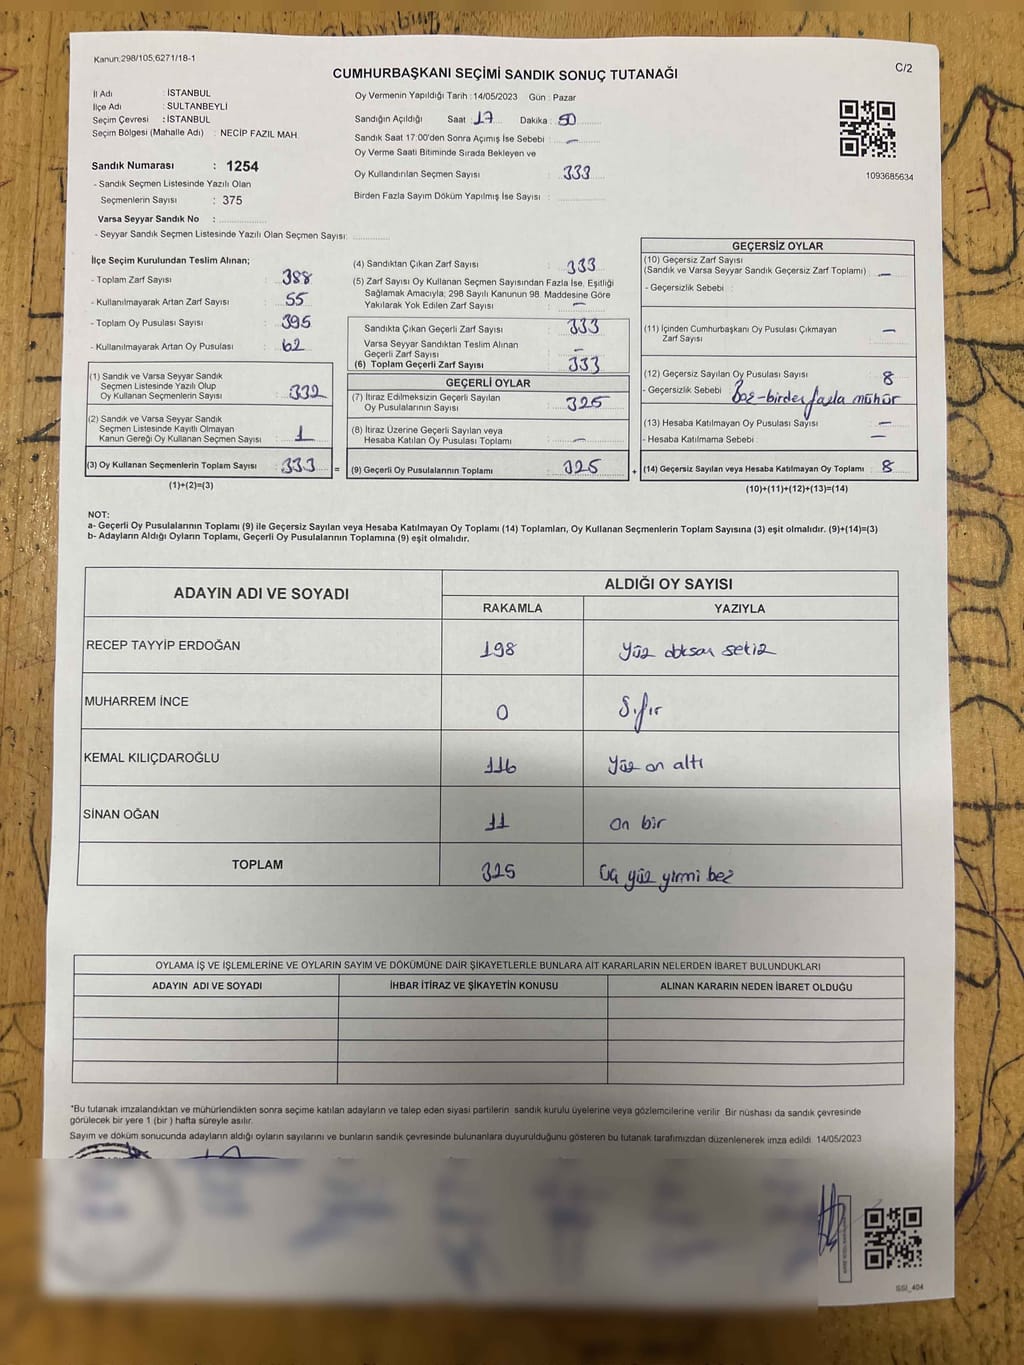 Kanun;298/105,6271/18-1
C/2
CUMHURBAŞKANI SEÇİMİ SANDIK SONUÇ TUTANAĞI
İl Adı : İSTANBUL
İlçe Adı : SULTANBEYLİ
Seçim Çevresi : İSTANBUL
Seçim Bölgesi (Mahalle Adı) : NECİP FAZIL MAH.
Sandık Numarası : 1254
- Sandık Seçmen Listesinde Yazılı Olan
Seçmenlerin Sayısı : 375
Varsa Seyyar Sandık No :
- Seyyar Sandık Seçmen Listesinde Yazılı Olan Seçmen Sayısı:
Oy Vermenin Yapıldığı Tarih : 14/05/2023 Gün : Pazar
Sandığın Açıldığı Saat : 17 Dakika : 50
Sandık Saat 17:00'den Sonra Açımış İse Sebebi : —
Oy Verme Saati Bitiminde Sırada Bekleyen ve
Oy Kullandırılan Seçmen Sayısı : 333
Birden Fazla Sayım Döküm Yapılmış İse Sayısı :
1093685634
İlçe Seçim Kurulundan Teslim Alınan;
- Toplam Zarf Sayısı : 388
- Kullanılmayarak Artan Zarf Sayısı : 55
- Toplam Oy Pusulası Sayısı : 395
- Kullanılmayarak Artan Oy Pusulası : 62
(1) Sandık ve Varsa Seyyar Sandık
Seçmen Listesinde Yazılı Olup
Oy Kullanan Seçmenlerin Sayısı : 332
(2) Sandık ve Varsa Seyyar Sandık
Seçmen Listesinde Kayıtlı Olmayan
Kanun Gereği Oy Kullanan Seçmen Sayısı : 1
(3) Oy Kullanan Seçmenlerin Toplam Sayısı : 333 =
(1)+(2)=(3)
(4) Sandıktan Çıkan Zarf Sayısı : 333
(5) Zarf Sayısı Oy Kullanan Seçmen Sayısından Fazla İse, Eşitliği
Sağlamak Amacıyla; 298 Sayılı Kanunun 98. Maddesine Göre
Yakılarak Yok Edilen Zarf Sayısı : —
Sandıkta Çıkan Geçerli Zarf Sayısı : 333
Varsa Seyyar Sandıktan Teslim Alınan
Geçerli Zarf Sayısı : —
(6) Toplam Geçerli Zarf Sayısı : 333
GEÇERLİ OYLAR
(7) İtiraz Edilmeksizin Geçerli Sayılan
Oy Pusulalarının Sayısı : 325
(8) İtiraz Üzerine Geçerli Sayılan veya
Hesaba Katılan Oy Pusulası Toplamı : —
(9) Geçerli Oy Pusulalarının Toplamı : 325 +
GEÇERSİZ OYLAR
(10) Geçersiz Zarf Sayısı
(Sandık ve Varsa Seyyar Sandık Geçersiz Zarf Toplamı) : —
- Geçersizlik Sebebi :
(11) İçinden Cumhurbaşkanı Oy Pusulası Çıkmayan
Zarf Sayısı : —
(12) Geçersiz Sayılan Oy Pusulası Sayısı : 8
- Geçersizlik Sebebi : Boş-birden fazla mühür
(13) Hesaba Katılmayan Oy Pusulası Sayısı : —
- Hesaba Katılmama Sebebi : —
(14) Geçersiz Sayılan veya Hesaba Katılmayan Oy Toplamı : 8
(10)+(11)+(12)+(13)=(14)
NOT:
a- Geçerli Oy Pusulalarının Toplamı (9) ile Geçersiz Sayılan veya Hesaba Katılmayan Oy Toplamı (14) Toplamları, Oy Kullanan Seçmenlerin Toplam Sayısına (3) eşit olmalıdır. (9)+(14)=(3)
b- Adayların Aldığı Oyların Toplamı, Geçerli Oy Pusulalarının Toplamına (9) eşit olmalıdır.
ADAYIN ADI VE SOYADI
ALDIĞI OY SAYISI
RAKAMLA YAZIYLA
RECEP TAYYİP ERDOĞAN 198 Yüz doksan sekiz
MUHARREM İNCE 0 Sıfır
KEMAL KILIÇDAROĞLU 116 Yüz on altı
SİNAN OĞAN 11 on bir
TOPLAM 325 Üç yüz yirmi beş
OYLAMA İŞ VE İŞLEMLERİNE VE OYLARIN SAYIM VE DÖKÜMÜNE DAİR ŞİKAYETLERLE BUNLARA AİT KARARLARIN NELERDEN İBARET BULUNDUKLARI
ADAYIN ADI VE SOYADI İHBAR İTİRAZ VE ŞİKAYETİN KONUSU ALINAN KARARIN NEDEN İBARET OLDUĞU
*Bu tutanak imzalandıktan ve mühürlendikten sonra seçime katılan adayların ve talep eden siyasi partilerin sandık kurulu üyelerine veya gözlemcilerine verilir. Bir nüshası da sandık çevresinde
görülecek bir yere 1 (bir ) hafta süreyle asılır.
Sayım ve döküm sonucunda adayların aldığı oyların sayılarını ve bunların sandık çevresinde bulunanlara duyurulduğunu gösteren bu tutanak tarafımızdan düzenlenerek imza edildi. 14/05/2023
SSI_404